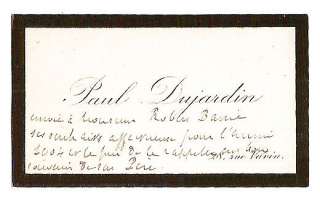 Paul Dujardin
envoie à Monsieur Robert
ses souhaits affectueux pour l'année
et le prie de le rappeler au bon
souvenir de son Père
28, rue Vavin.